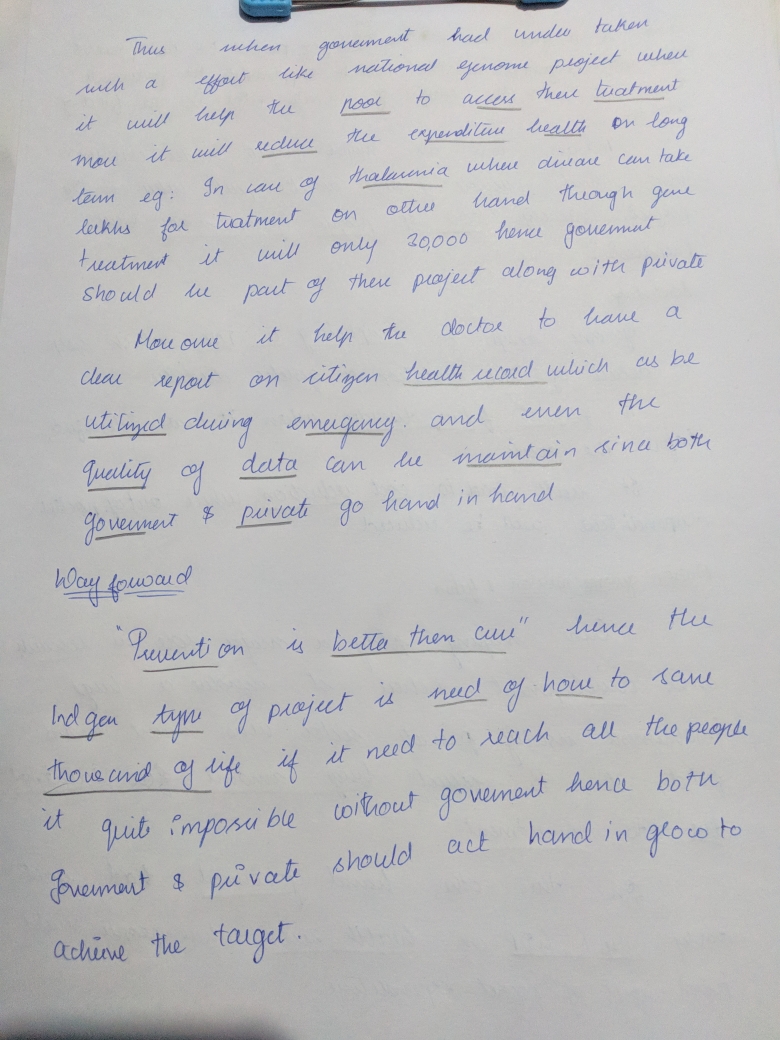 Thus when goverment had under taken
such a effort like national genome project where
it will help the poor to access there treatment
more it will reduce the expenditure health on long
term eg: In case of thalasmia where disease can take
lakhs for treatment on other hand through gene
treatment it will only 20,000 hence goverment
should be part of there project along with private
More over it help the doctor to have a
clear report on citizen health record which as be
utilized during emergency. and even the
quality of data can be maintain since both
goverment & private go hand in hand
Way forward
"Prevention is better then cure" hence the
Ind gen type of project is need of hour to save
thousand of life if it need to reach all the people
it quite impossible without goverment hence both
goverment & private should act hand in glow to
achieve the target.